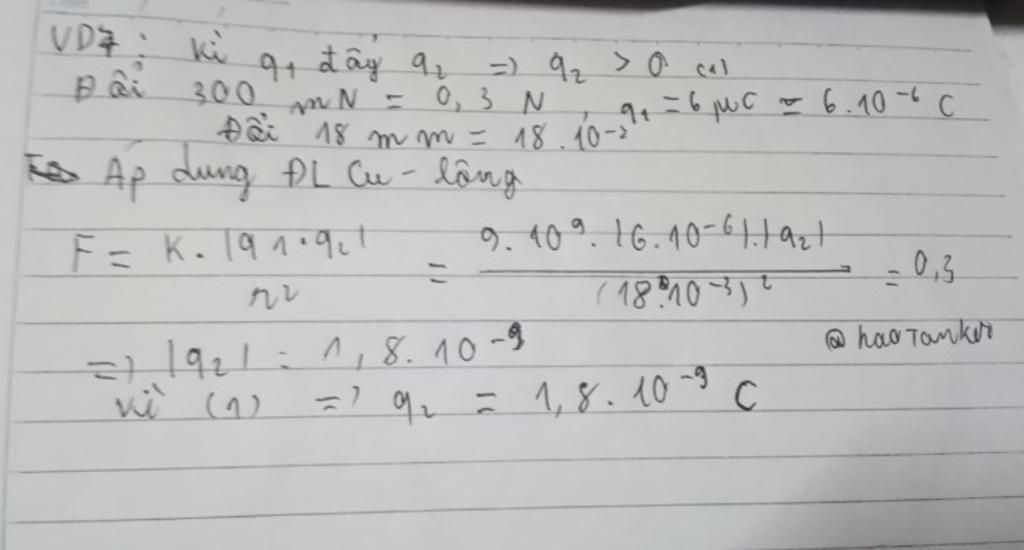 VD7: Vì q₁ đẩy q₂ => q₂ > 0 (1)
Đổi 300 mN = 0,3 N, q₁ = 6 μC = 6.10⁻⁶ C
Đổi 18 mm = 18.10⁻³
Áp dung ĐL Cu-lông
F = K.|q1.q₂| / r² = 9.10⁹.|6.10⁻⁶|.|q₂| / (18.10⁻³)² = 0,3
=> |q₂| = 1,8.10⁻⁹
@haoTanker
Vì (1) => q₂ = 1,8.10⁻⁹ C